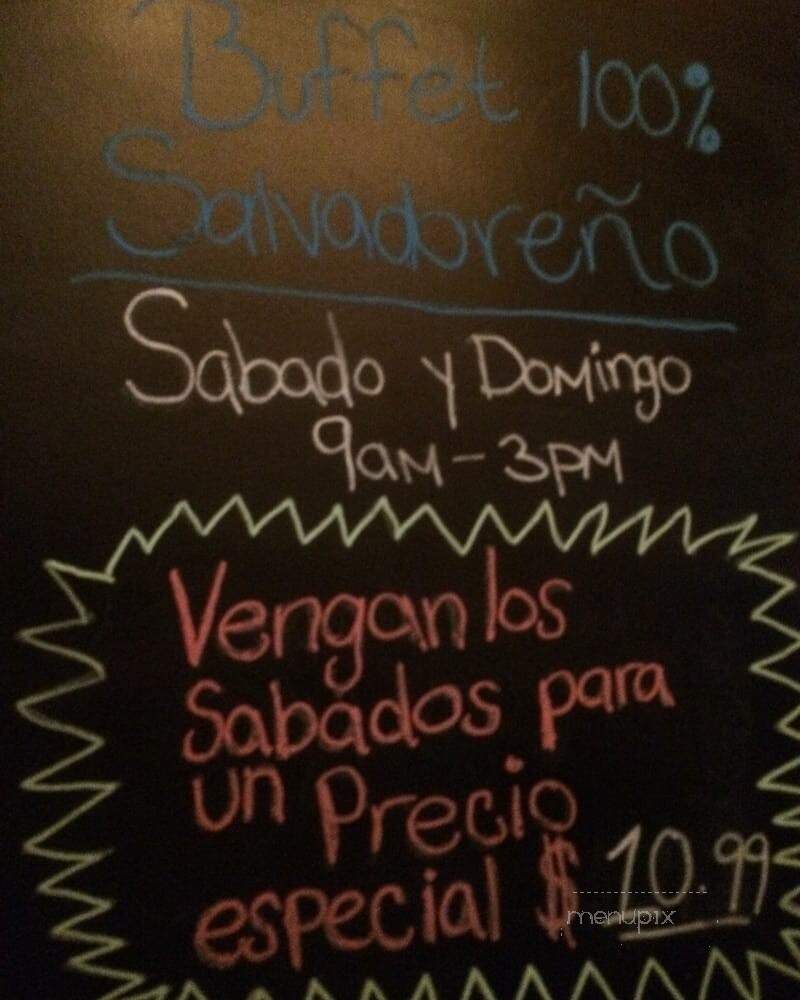 Buffet 100%
Salvadoreño
Sabado y Domingo
9am - 3pm
Vengan los
Sabados para
un Precio
especial $ 10.99
menupix